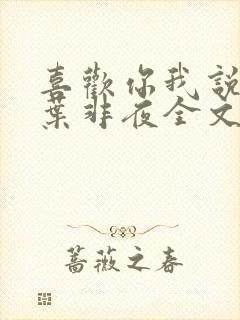 喜歡你我說
葉非夜全文
薔薇之春